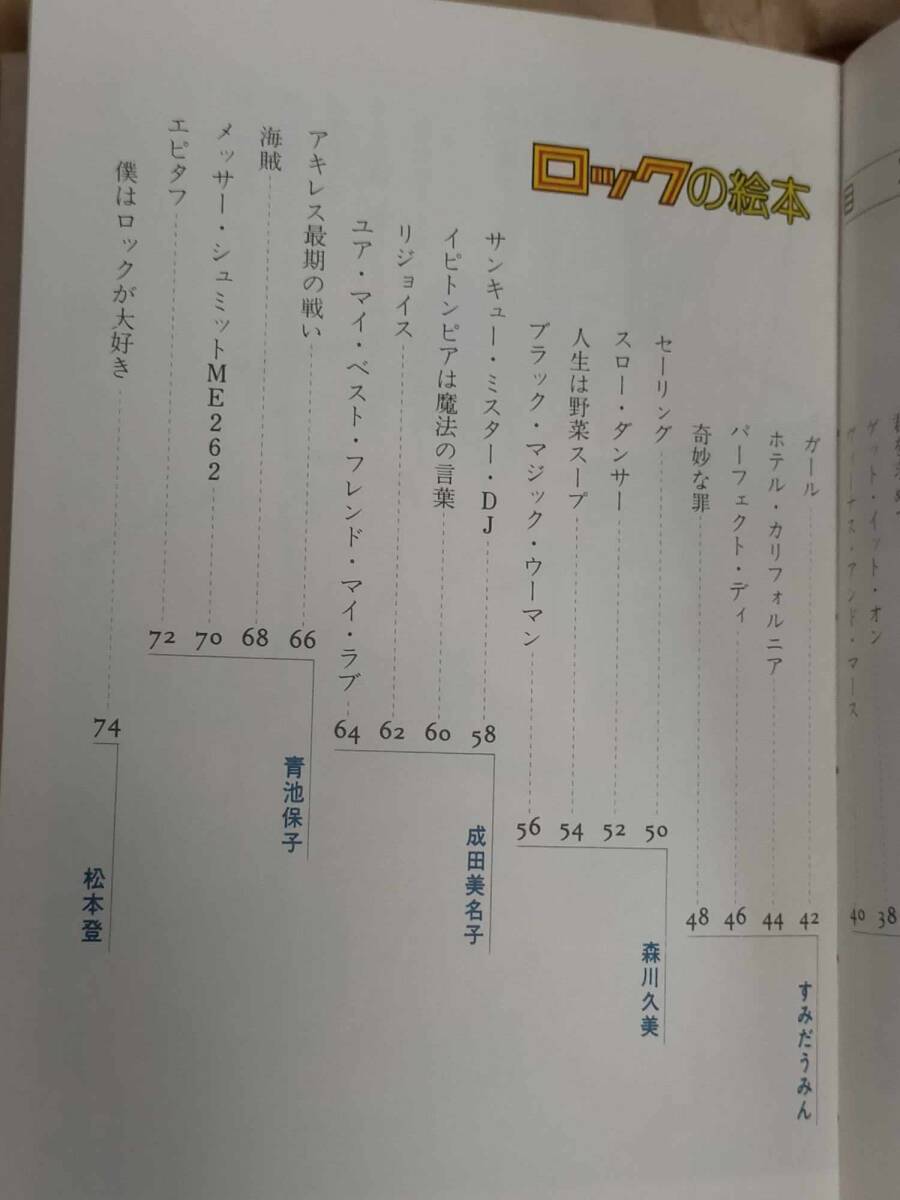 目
ゲット・イット・オン
38
ヴィーナス・アンド・マース
40
ロックの絵本
ガール
42
ホテル・カリフォルニア
44
パーフェクト・ディ
46
奇妙な罪
48
すみだうみん
セーリング
50
スロー・ダンサー
52
人生は野菜スープ
54
ブラック・マジック・ウーマン
56
森川久美
サンキュー・ミスター・DJ
58
イピトンピアは魔法の言葉
60
リジョイス
62
ユア・マイ・ベスト・フレンド・マイ・ラブ
64
成田美名子
アキレス最期の戦い
66
海賊
68
メッサー・シュミットME262
70
エピタフ
72
青池保子
僕はロックが大好き
74
松本登